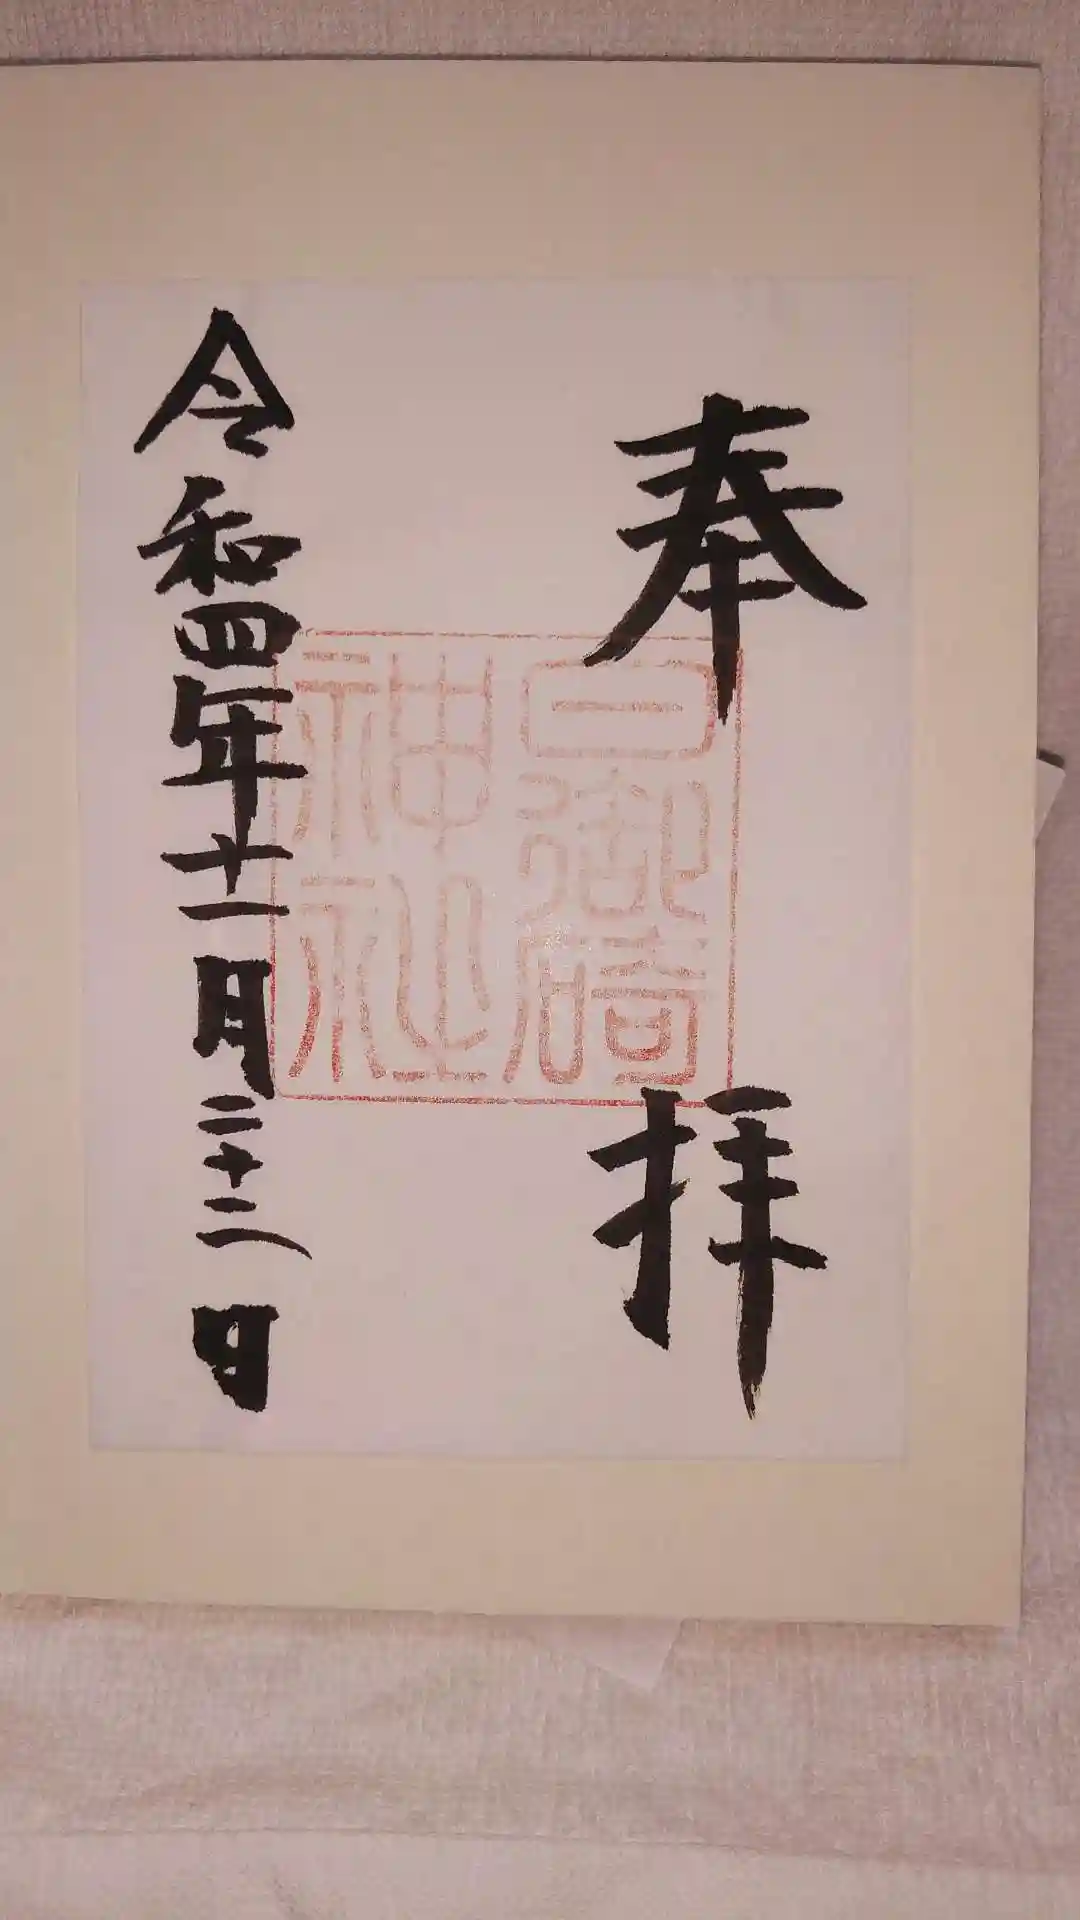 奉拝
日御碕
神社
令和四年十一月二十二日